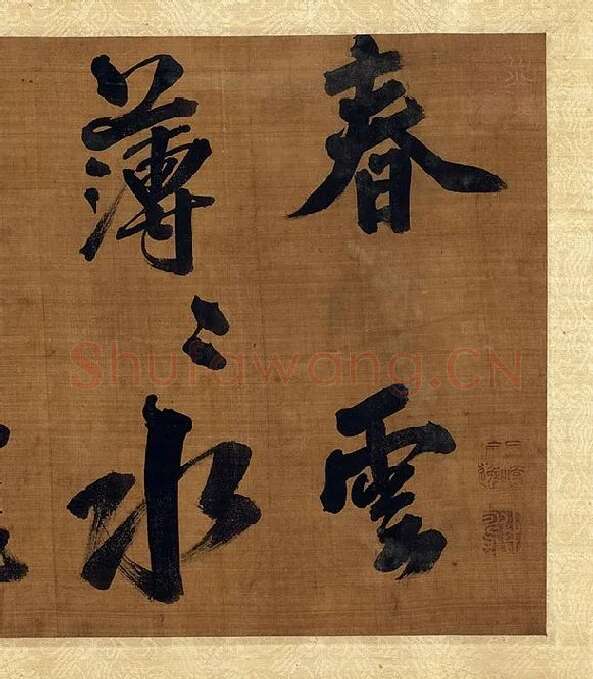 春雲
薄〻水
Shufawang.CN